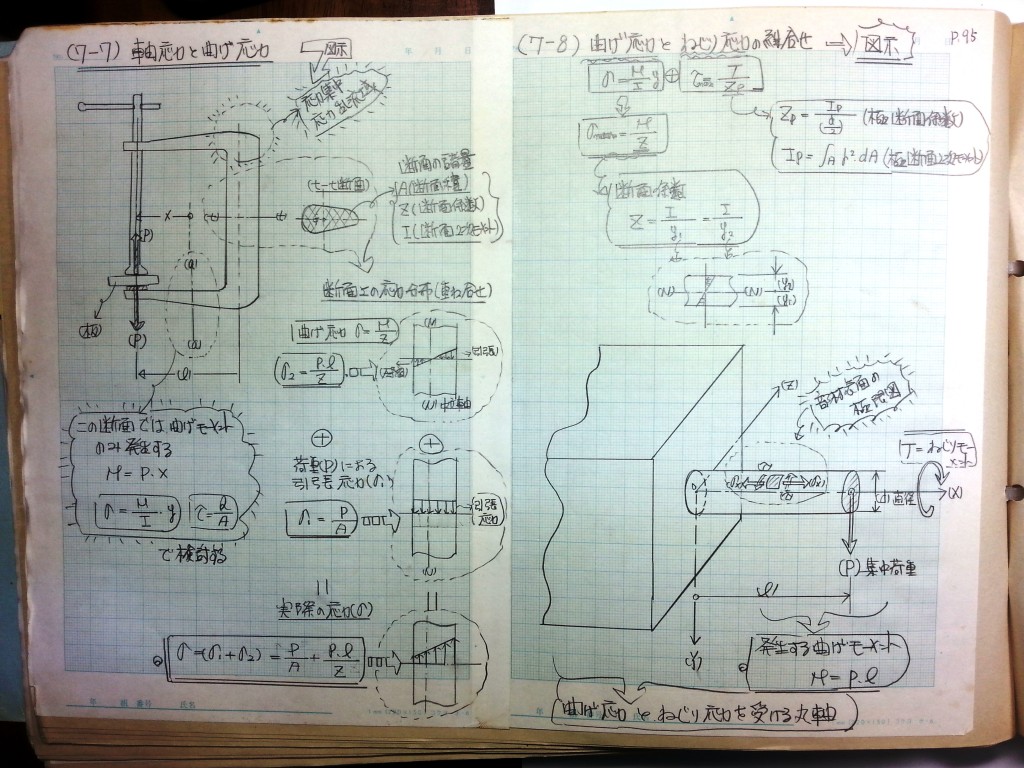 (7-7) 軸応力と曲げ応力
図示
応力集中
応力乱れ域
断面の諸量
(t-t断面)
A(断面積)
Z(断面係数)
I(断面2次モーメント)
x
t
t
(P)
(P)
(a)
(a)
(板)
l
断面上の応力分布(重ね合せ)
曲げ応力 σ=M/Z
σ2=P.l/Z
(N)
(引張)
(N)中立軸
この断面では曲げモーメント
のみ発生する
M=P.x
σ=M/I・y
τ=Q/A
で検討する
⊕
⊕
荷重(P)による
引張応力(σ1)
σ1=P/A
引張応力
(N)
=
実際の応力(σ)
σ=(σ1+σ2)=P/A+P.l/Z
(7-8) 曲げ応力とねじり応力の組合せ
図示
P.95
σ=M/I y ⊕ τmax=T/Zp
σmax=M/Z
Zp=Ip/(d/2) (極断面係数)
Ip=∫A r² dA (極断面2次モーメント)
断面係数
Z=I/y1=I/y2
(N)
(N)
(y2)
(y1)
(Z)
部材表面の
極限図
T=ねじりモーメント
(X)
d 直径
(P)集中荷重
l
(Y)
発生する曲げモーメント
M=P.l
曲げ応力とねじり応力を受ける丸軸